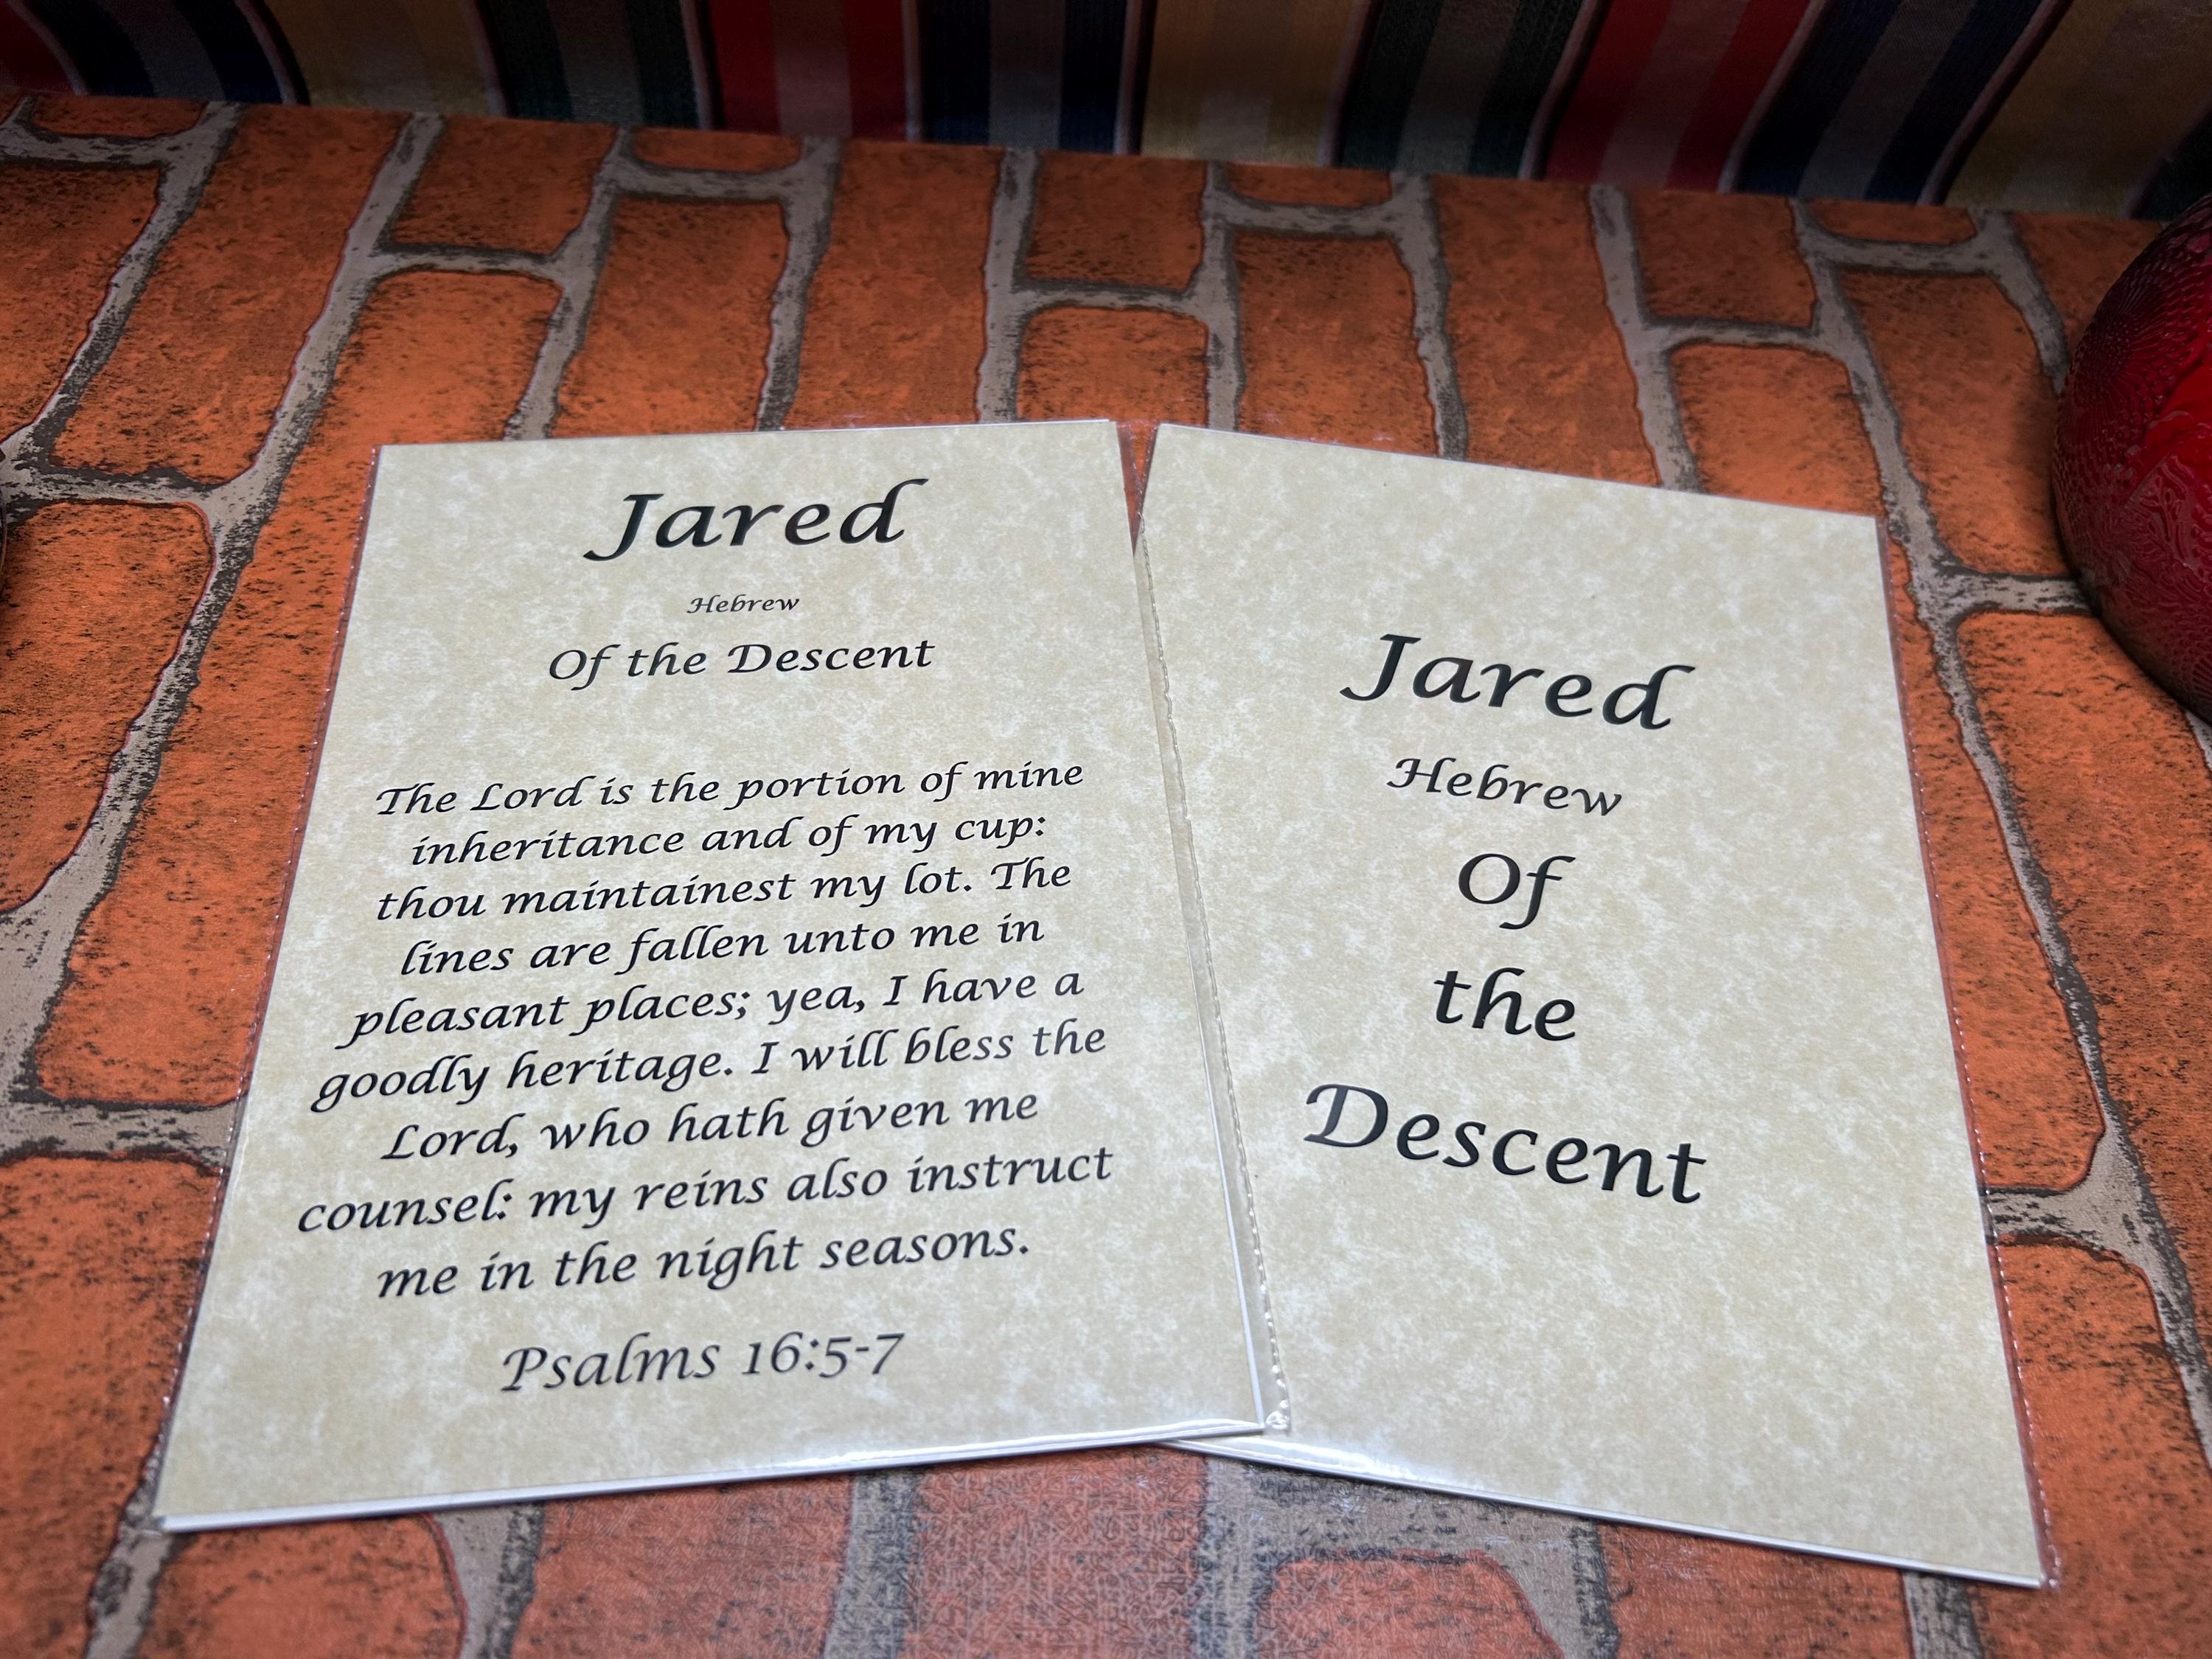 Jared
Hebrew
Of the Descent
The Lord is the portion of mine
inheritance and of my cup:
thou maintainest my lot. The
lines are fallen unto me in
pleasant places; yea, I have a
goodly heritage. I will bless the
Lord, who hath given me
counsel: my reins also instruct
me in the night seasons.
Psalms 16:5-7
Jared
Hebrew
Of
the
Descent